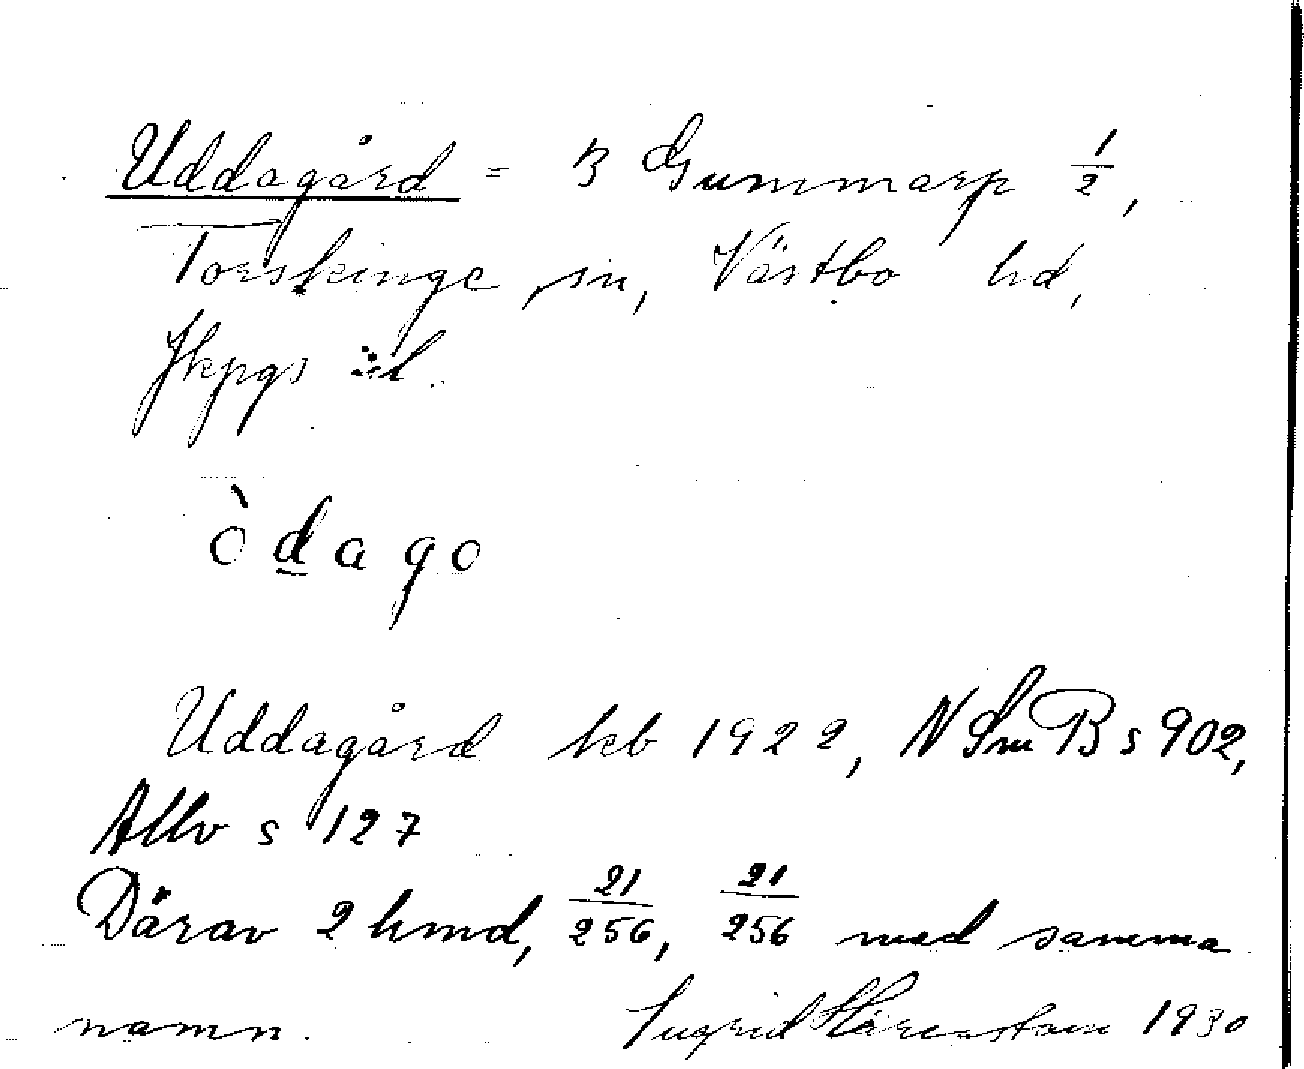 Uddagård = B Gummarp 1/2,
Torskinge sn, Västbo hd,
Jkpgs l.
òdago
Uddagård kb 1922, NSmB s 902,
Allv s 127
Därav 2 hmd, 21/256, 21/256 med samma
namn. Ingrid Härenstam 1930